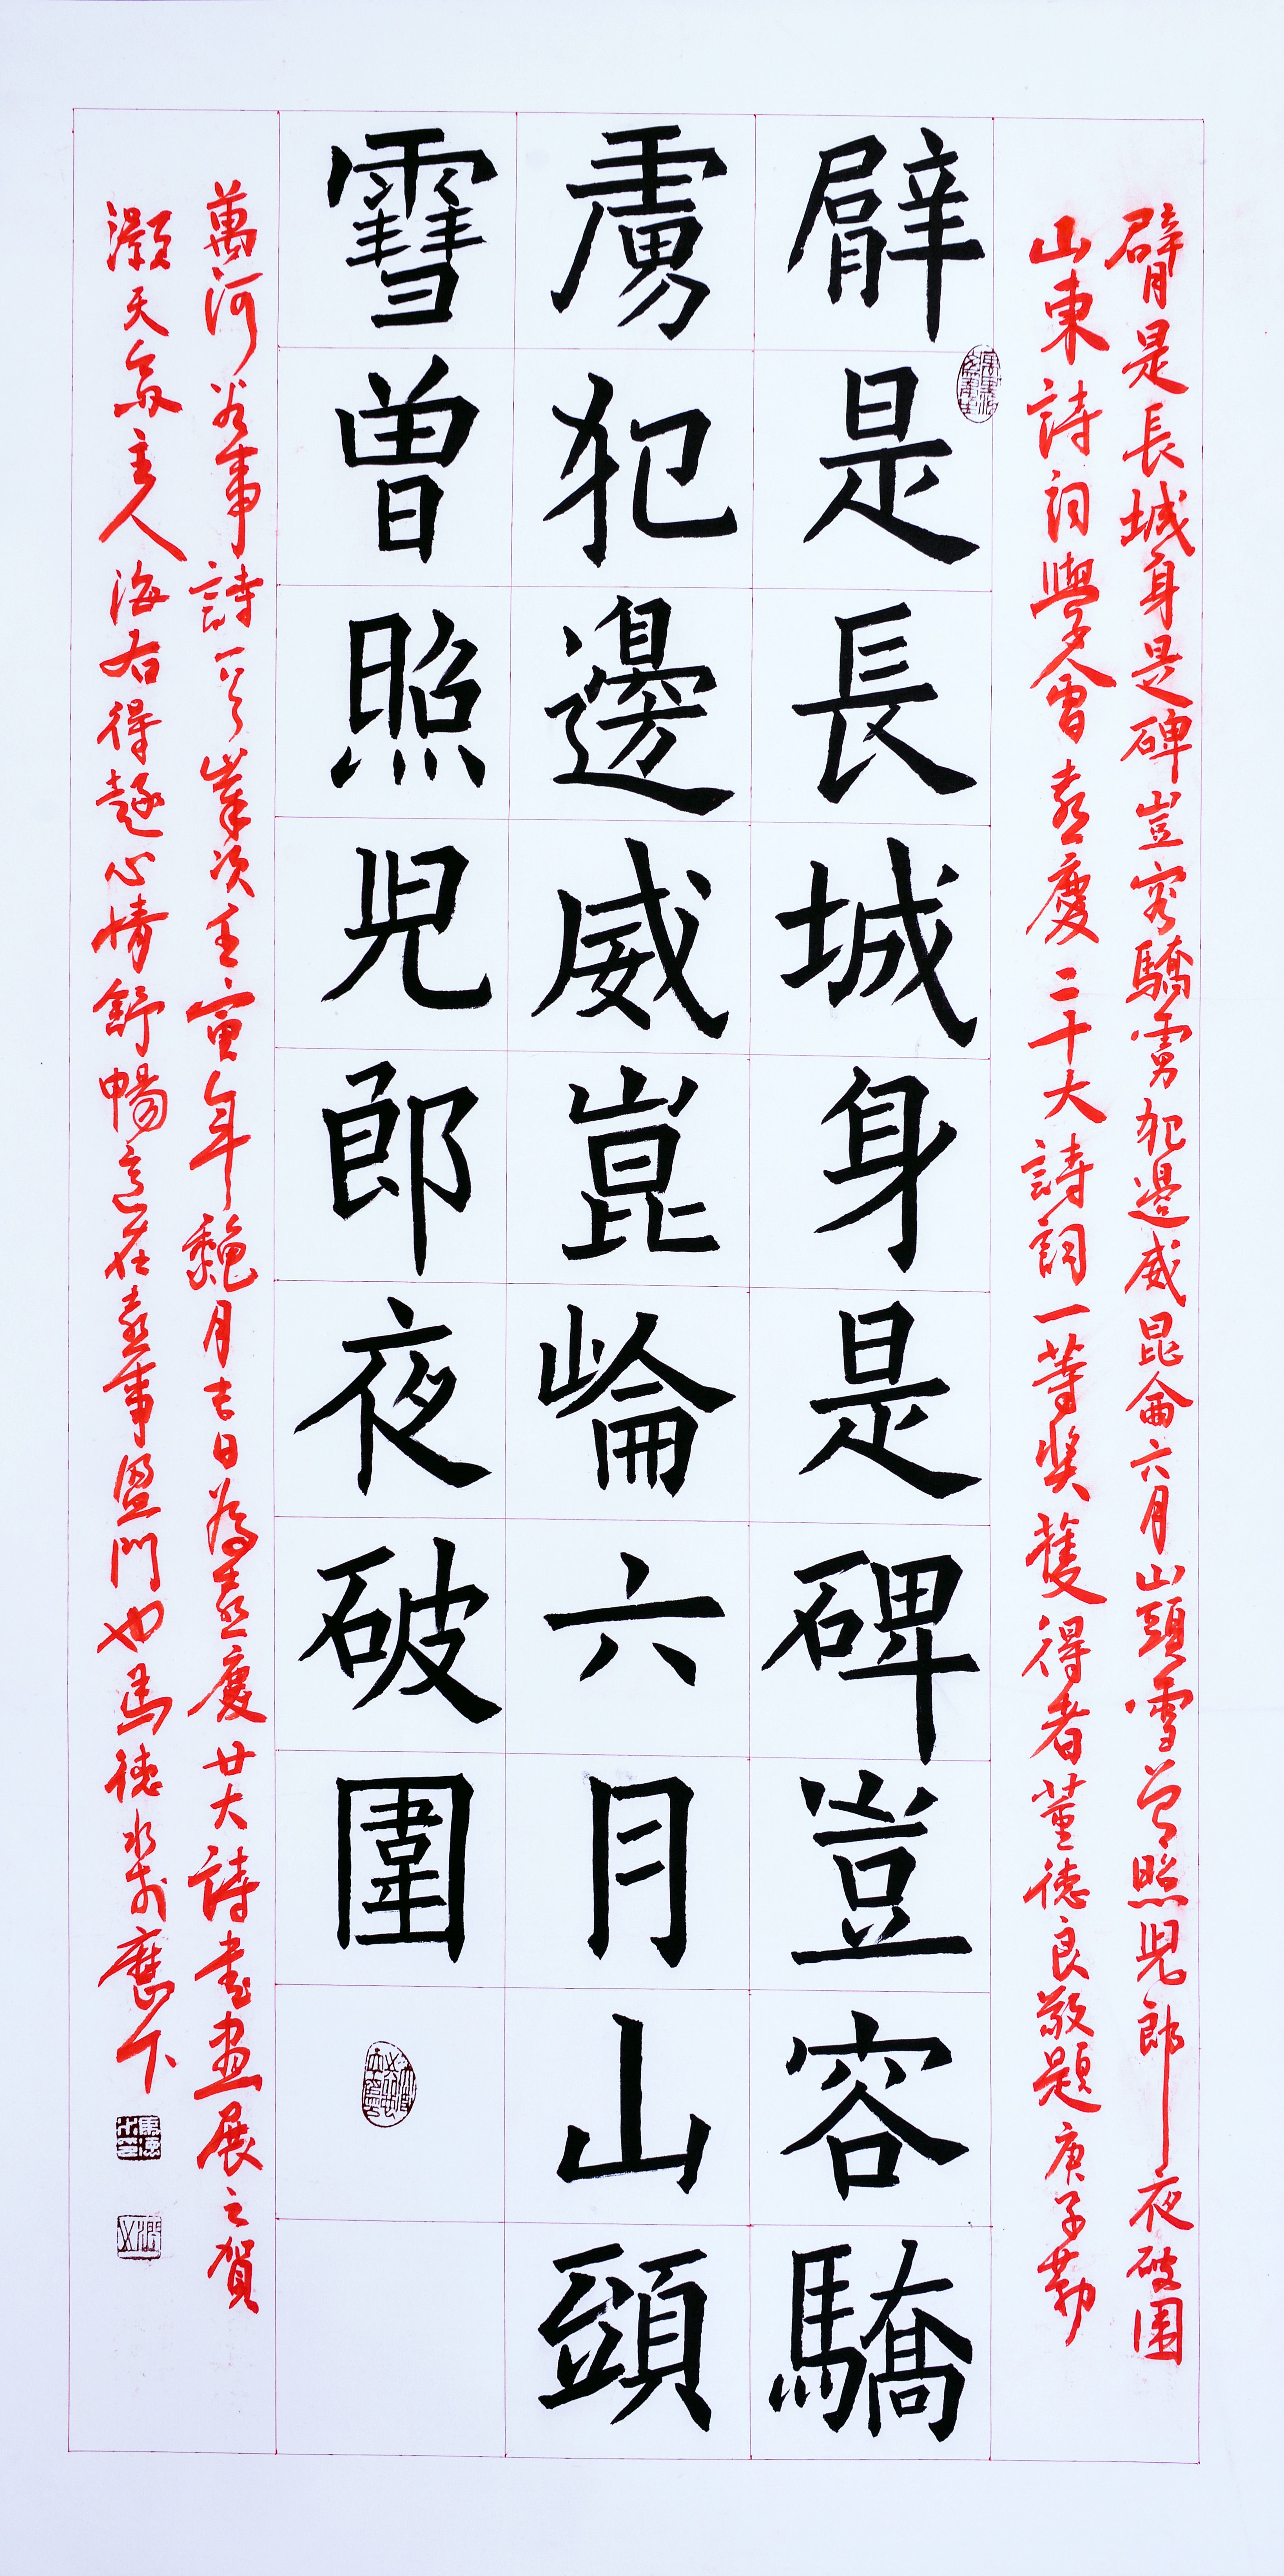 臂是長城身是碑豈容驕虜犯邊威昆侖六月山頭雪曾照兒郎夜破圍
山東詩詞學會喜慶二十大詩詞一等獎獲得者董德良敬題庚子勒
臂是長城身是碑豈容驕
虜犯邊威崑崙六月山頭
雪曾照兒郎夜破圍
萬河谷事詩一首歲次壬寅年魏月吉日為喜慶廿大詩書畫展之賀
灝天齋主人海右得趣心情舒暢意在喜事盈門也馬德水書於應下